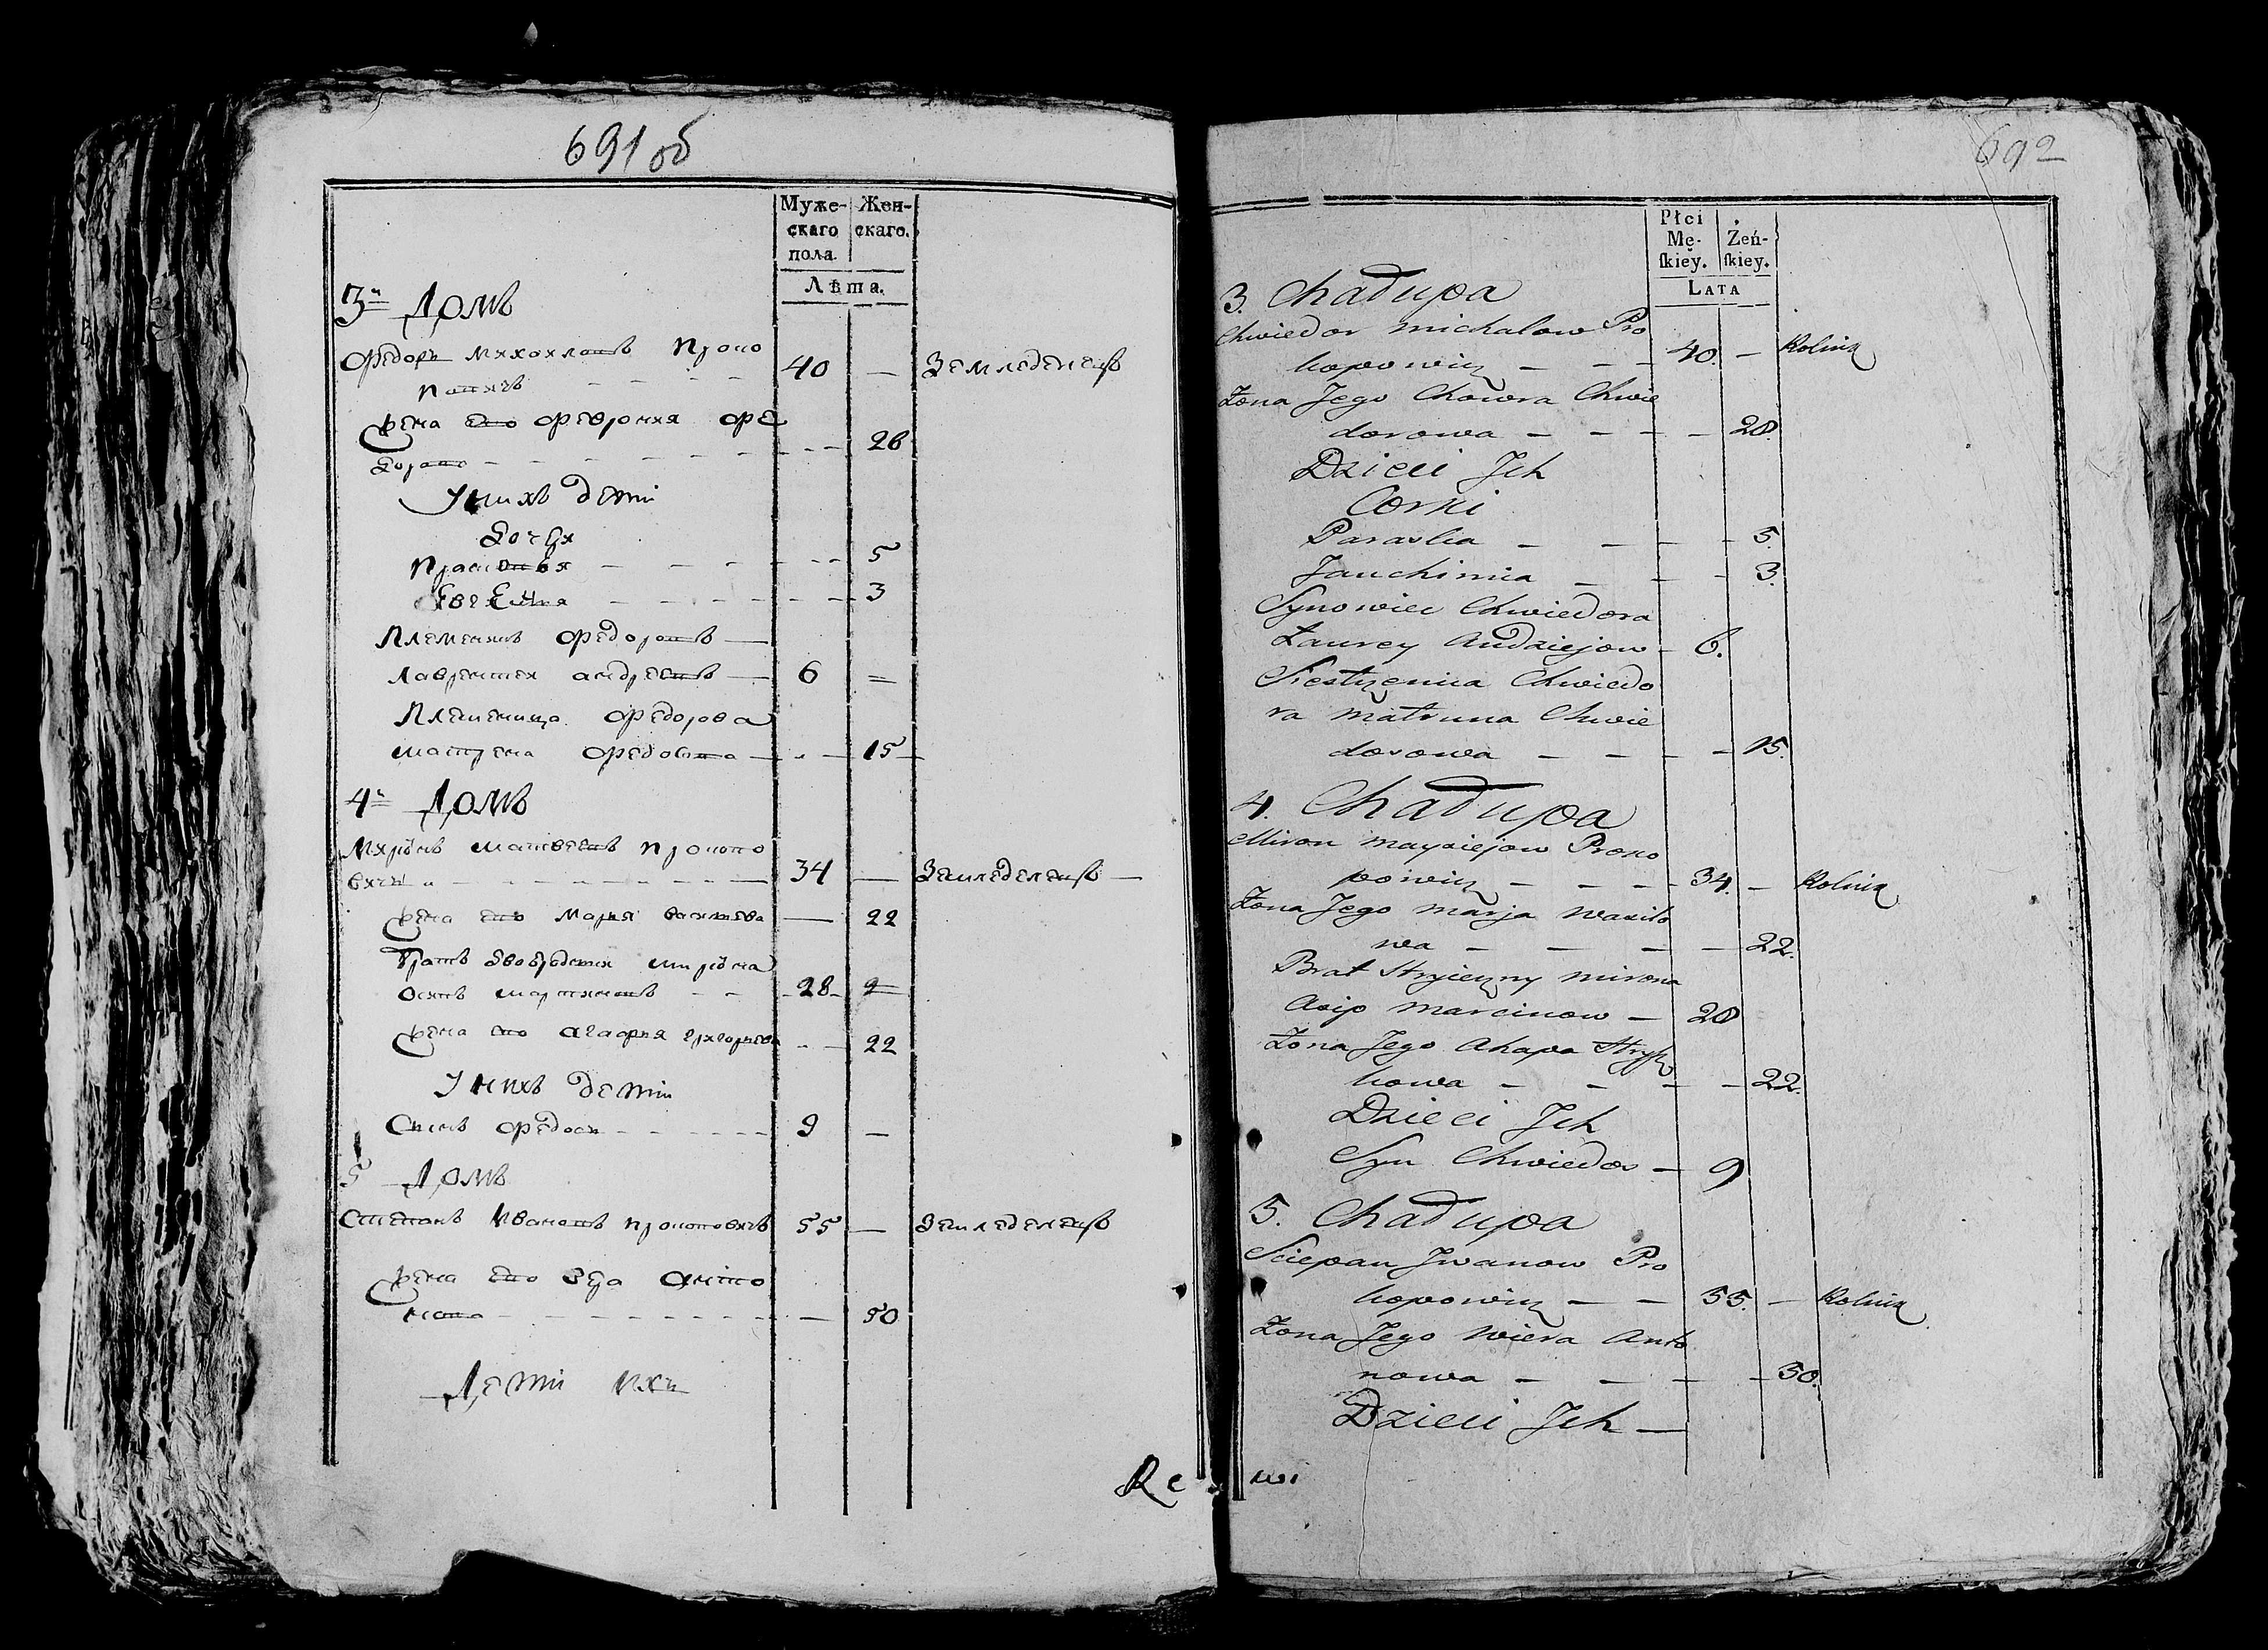 691 об
Муже-
скаго
пола.
Жен-
скаго.
Лѣта.
3й Домъ
Федоръ Михаиловъ Проко
повичъ 40 — Земледелецъ
Жена его Февронія Фе
дорова 28
У нихъ дети
Дочери
Прасковья 5
3
Племяникъ Федоровъ —
Лаврентей Андреевъ — 6 =
Племеница Федорова
Матрена Федорова 15
4й Домъ
Миронъ Матвеевъ Прокопо
вичъ 34 — Земледелецъ —
Жена его Марья Васильева — 22
Братъ двоюродный Мирона
Осипъ Мартиновъ 28
Жена его Агафья Григорьева 22
У нихъ дети
Сынъ Федосъ 9 —
5 Домъ
Степанъ Ивановъ Прокоповичъ 55 — Земледелецъ
Жена его Вера Анто
нова 50
Дети ихъ
Re
692
Płci
Mę-
skiey.
Żeń-
skiey.
LATA
3. Chałupa
Chwiedor Michałow Pro
kopowicz — 40. — Rolnik
Żona Jego Chowra Chwie
dorowa — 28.
Dzieci Jch
Corki
Paraska — 5.
Jauchimia — 3.
Synowiec Chwiedora
Łaurey Andziejow — 6.
Siestrzenica Chwiedo
ra Matruna Chwie
dorowa — 15.
4. Chałupa
Miron Mayziejow Proko
powicz — 34. — Rolnik
Żona Jego Marja Wasilo
wa — 22.
Brat Stryieczny Mirona
Asip Marcinow — 28
Żona Jego Ahapa Hryh
kowa — 22.
Dzieci Jch
Syn Chwiedos — 9
5. Chałupa
Sciepan Jwanow Pro
kopowicz — 55. — Rolnik
Żona Jego Wiera Anto
nowa — 50.
Dzieci Jch —
wi